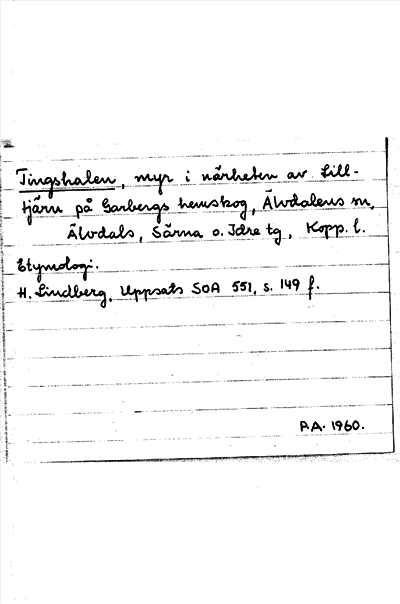 Tingshalen, myr i närheten av Lill-
tjärn på Garbergs hemskog, Älvdalens sn,
Älvdals, Särna o. Idre tg, Kopp. l.
Etymologi:
H. Lindberg, Uppsats SOA 551, s. 149 f.
A.A. 1960.